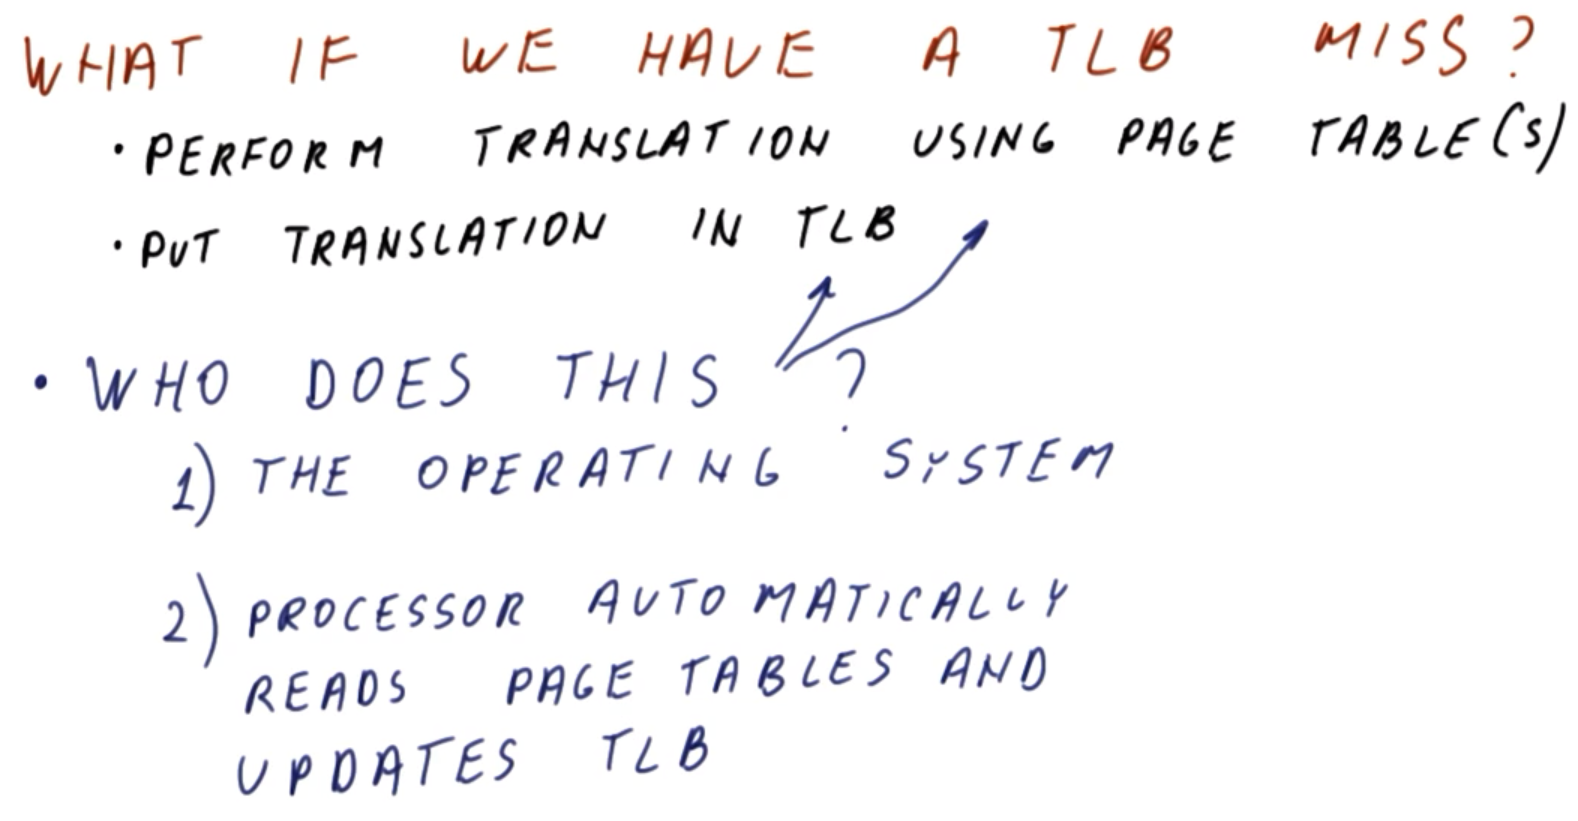 WHAT IF WE HAVE A TLB MISS?
• PERFORM TRANSLATION USING PAGE TABLE(S)
• PUT TRANSLATION IN TLB
• WHO DOES THIS ?
1) THE OPERATING SYSTEM
2) PROCESSOR AUTOMATICALLY
READS PAGE TABLES AND
UPDATES TLB